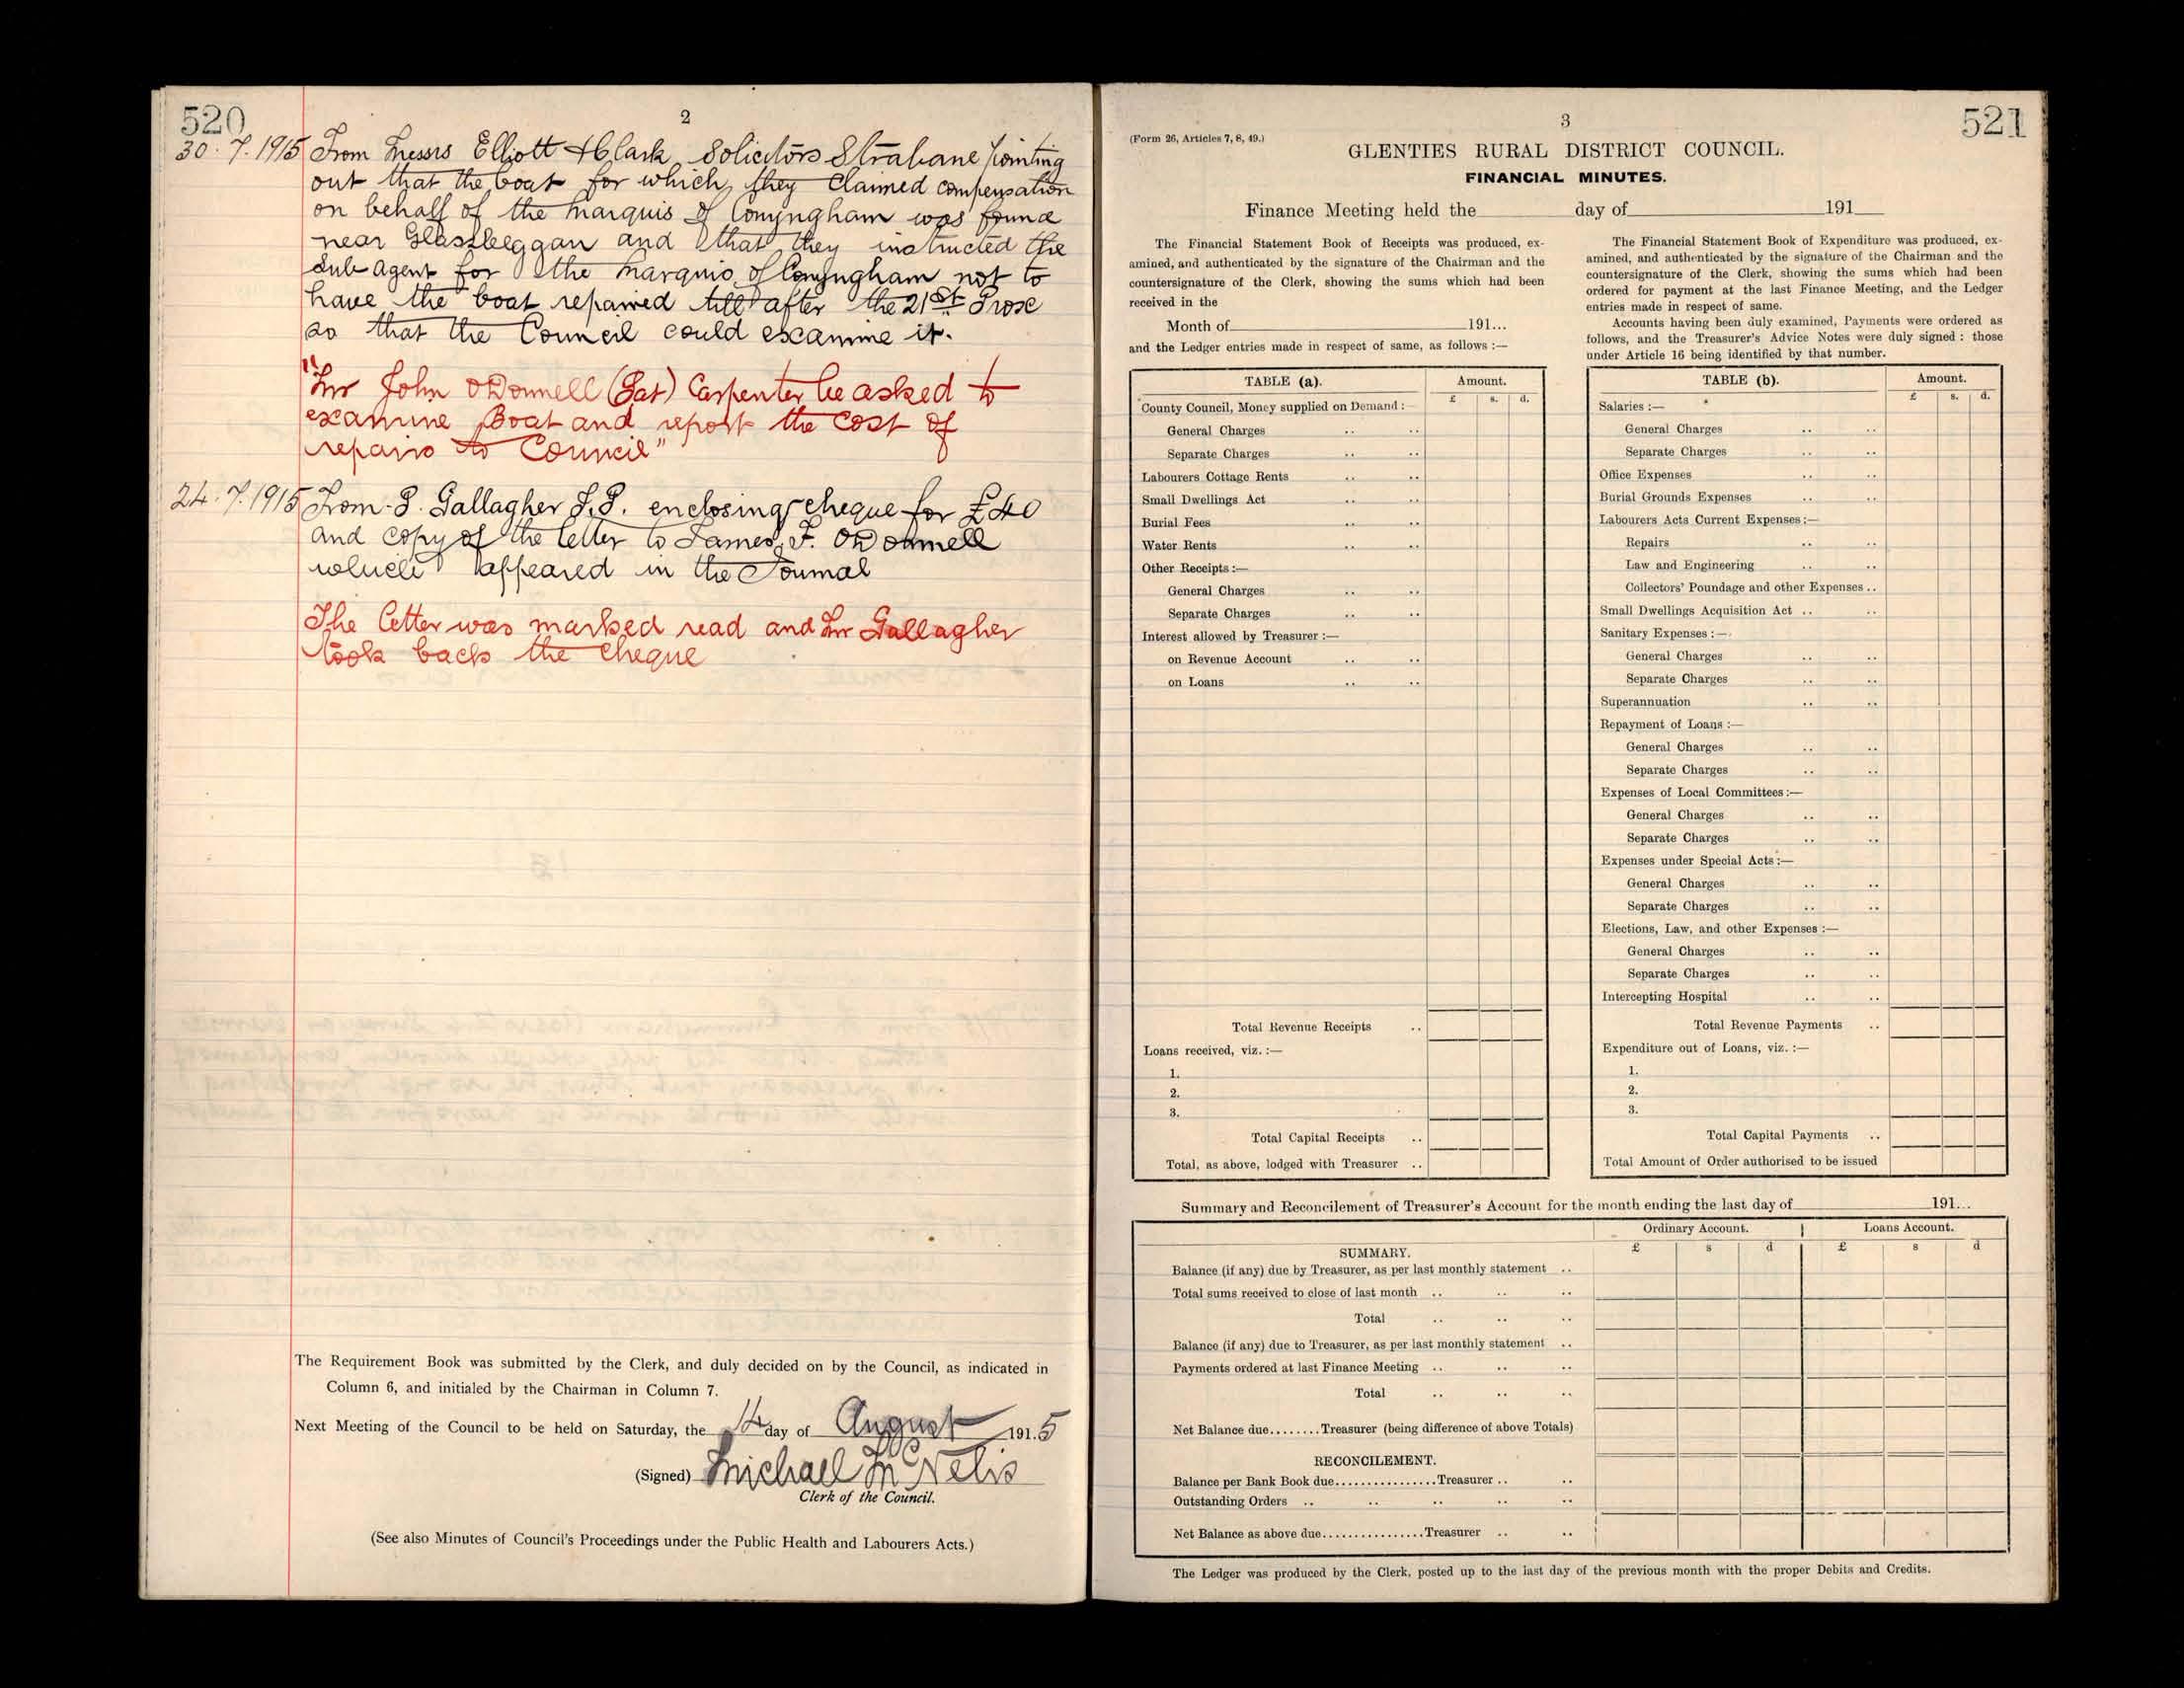 520
2
30.7.1915 From Messrs Elliott & Clark Solicitors Strabane pointing
out that the boat for which they claimed compensation
on behalf of the Marquis of Conyngham was found
near and that they instructed the
Sub agent for the Marquis of Conyngham not to
have the boat repaired till after the 21st Prox
so that the Council could examine it.
"Mr John O'Donnell (Pat) Carpenter be asked to
examine Boat and report the cost of
repairs to Council"
24.7.1915 From P. Gallagher J.P. enclosing cheque for £40
and copy of the letter to James F. O'Donnell
which appeared in the Journal
The letter was marked read and Mr Gallagher
took back the cheque
The Requirement Book was submitted by the Clerk, and duly decided on by the Council, as indicated in
Column 6, and initialed by the Chairman in Column 7.
Next Meeting of the Council to be held on Saturday, the 14 day of August 1915
(Signed) Michael McNelis
Clerk of the Council.
(See also Minutes of Council's Proceedings under the Public Health and Labourers Acts.)
3
521
(Form 26, Articles 7, 8, 49.)
GLENTIES RURAL DISTRICT COUNCIL.
FINANCIAL MINUTES.
Finance Meeting held the day of 191
The Financial Statement Book of Receipts was produced, ex-
amined, and authenticated by the signature of the Chairman and the
countersignature of the Clerk, showing the sums which had been
received in the
Month of 191...
and the Ledger entries made in respect of same, as follows :—
The Financial Statement Book of Expenditure was produced, ex-
amined, and authenticated by the signature of the Chairman and the
countersignature of the Clerk, showing the sums which had been
ordered for payment at the last Finance Meeting, and the Ledger
entries made in respect of same.
Accounts having been duly examined, Payments were ordered as
follows, and the Treasurer's Advice Notes were duly signed : those
under Article 16 being identified by that number.
TABLE (a). Amount.
£ s. d.
County Council, Money supplied on Demand :—
General Charges .. ..
Separate Charges .. ..
Labourers Cottage Rents .. ..
Small Dwellings Act .. ..
Burial Fees .. ..
Water Rents .. ..
Other Receipts :—
General Charges .. ..
Separate Charges .. ..
Interest allowed by Treasurer :—
on Revenue Account .. ..
on Loans .. ..
Total Revenue Receipts ..
Loans received, viz. :—
1.
2.
3.
Total Capital Receipts ..
Total, as above, lodged with Treasurer ..
TABLE (b). Amount.
£ s. d.
Salaries :—
General Charges .. ..
Separate Charges .. ..
Office Expenses .. ..
Burial Grounds Expenses .. ..
Labourers Acts Current Expenses :—
Repairs .. ..
Law and Engineering .. ..
Collectors' Poundage and other Expenses ..
Small Dwellings Acquisition Act .. ..
Sanitary Expenses :—
General Charges .. ..
Separate Charges .. ..
Superannuation .. ..
Repayment of Loans :—
General Charges .. ..
Separate Charges .. ..
Expenses of Local Committees :—
General Charges .. ..
Separate Charges .. ..
Expenses under Special Acts :—
General Charges .. ..
Separate Charges .. ..
Elections, Law, and other Expenses :—
General Charges .. ..
Separate Charges .. ..
Intercepting Hospital .. ..
Total Revenue Payments ..
Expenditure out of Loans, viz. :—
1.
2.
3.
Total Capital Payments ..
Total Amount of Order authorised to be issued
Summary and Reconcilement of Treasurer's Account for the month ending the last day of 191...
Ordinary Account. Loans Account.
£ s d £ s d
SUMMARY.
Balance (if any) due by Treasurer, as per last monthly statement ..
Total sums received to close of last month .. .. ..
Total .. .. ..
Balance (if any) due to Treasurer, as per last monthly statement ..
Payments ordered at last Finance Meeting .. .. ..
Total .. .. ..
Net Balance due........Treasurer (being difference of above Totals)
RECONCILEMENT.
Balance per Bank Book due................Treasurer .. ..
Outstanding Orders .. .. .. .. ..
Net Balance as above due................Treasurer .. ..
The Ledger was produced by the Clerk, posted up to the last day of the previous month with the proper Debits and Credits.